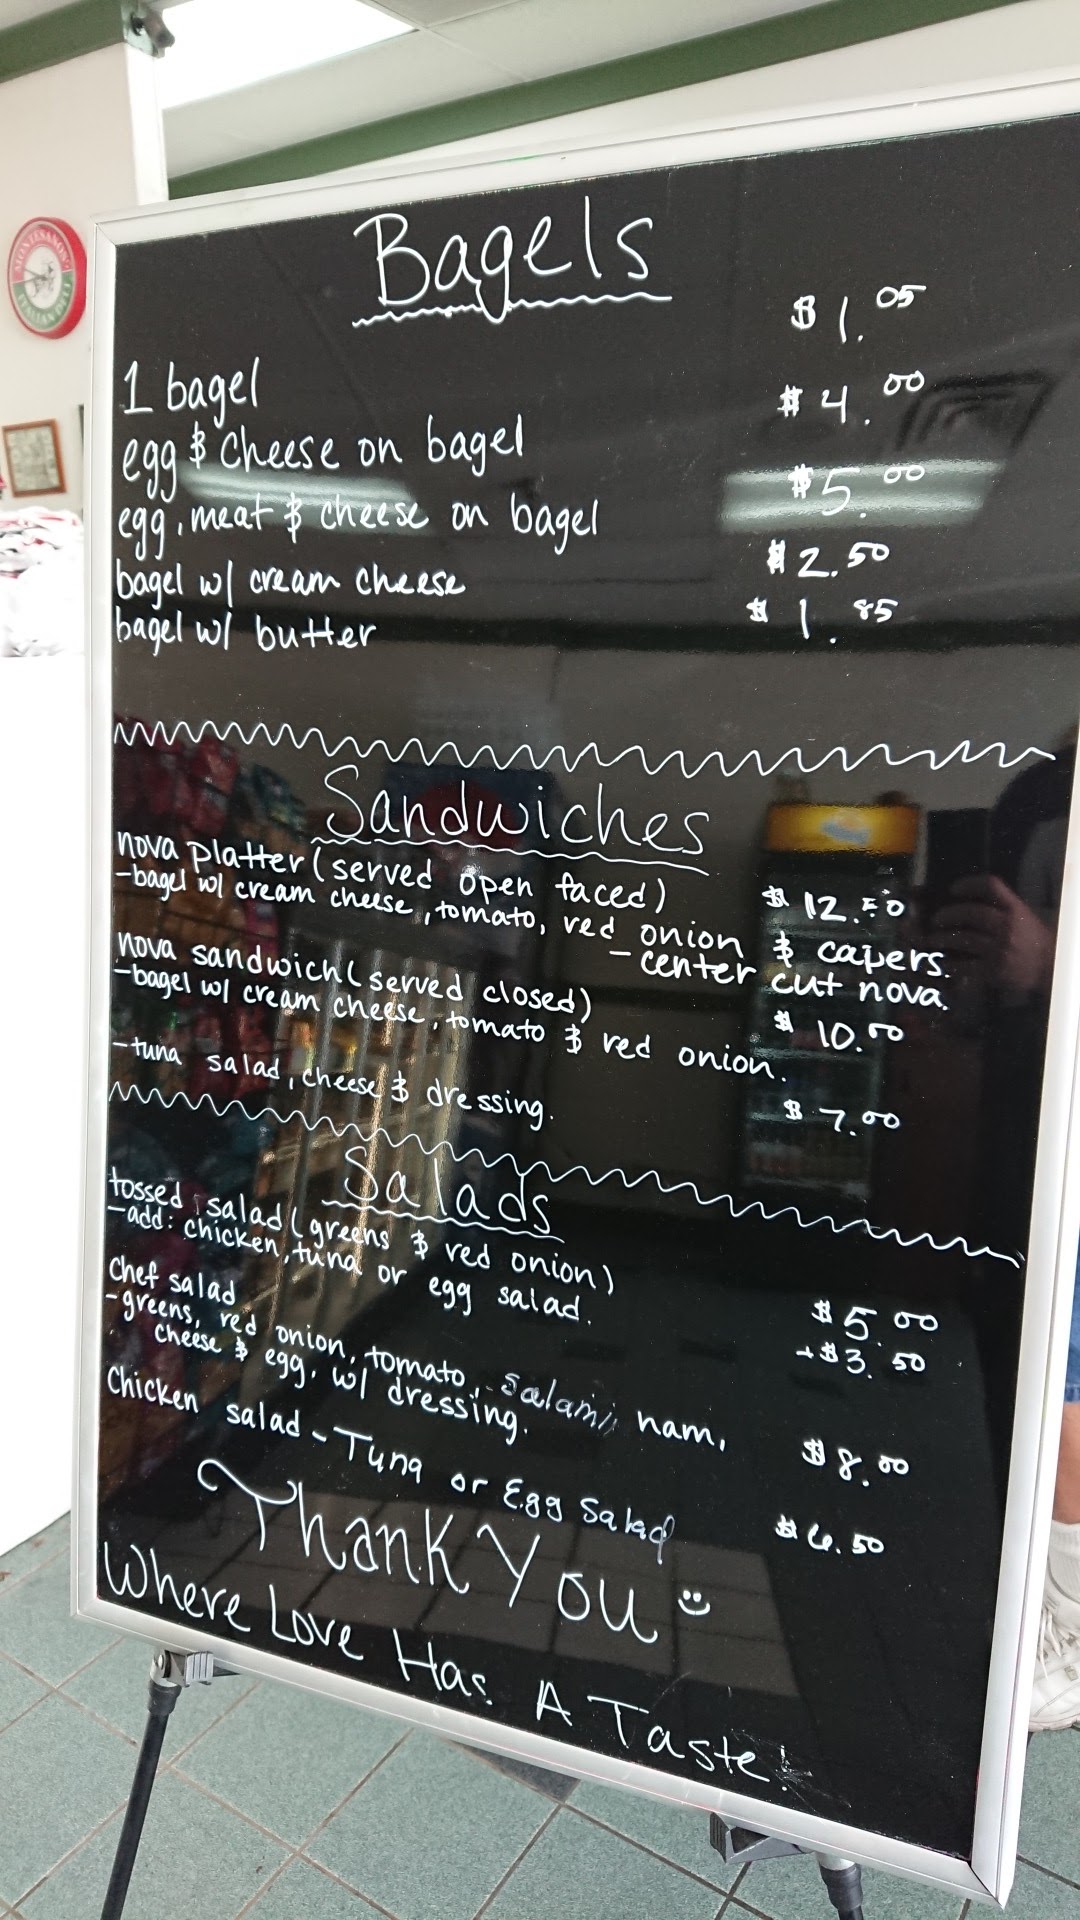 MONTESANO'S
ITALIAN DELI
Bagels
1 bagel $1.05
egg & cheese on bagel $4.00
egg, meat & cheese on bagel $5.00
bagel w/ cream cheese $2.50
bagel w/ butter $1.85
Sandwiches
nova platter (served open faced) $12.50
-bagel w/ cream cheese, tomato, red onion & capers.
-center cut nova.
nova sandwich (served closed) $10.00
-bagel w/ cream cheese, tomato & red onion.
-tuna salad, cheese & dressing. $7.00
Salads
tossed salad (greens & red onion) $5.00
-add: chicken, tuna or egg salad. +$3.50
Chef salad $8.00
-greens, red onion, tomato, salami, ham,
cheese & egg. w/ dressing.
Chicken salad - Tuna or Egg Salad $6.50
Thank You
Where Love Has A Taste!